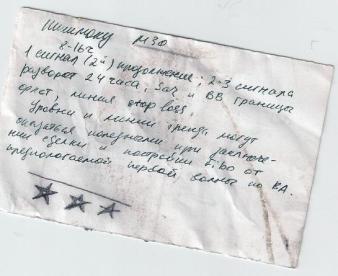 Ишимоку М30
8-16ч
1 сигнал (2й) продолжение; 2-3 сигнала
разворот 24 часа, Sar и BB границы
флет, линия stop loss.
Уровни и линии тренд, могут
оказаться полезными при
нии сделки и построении Fibo от
предпологаемой первой, волны по ВА.